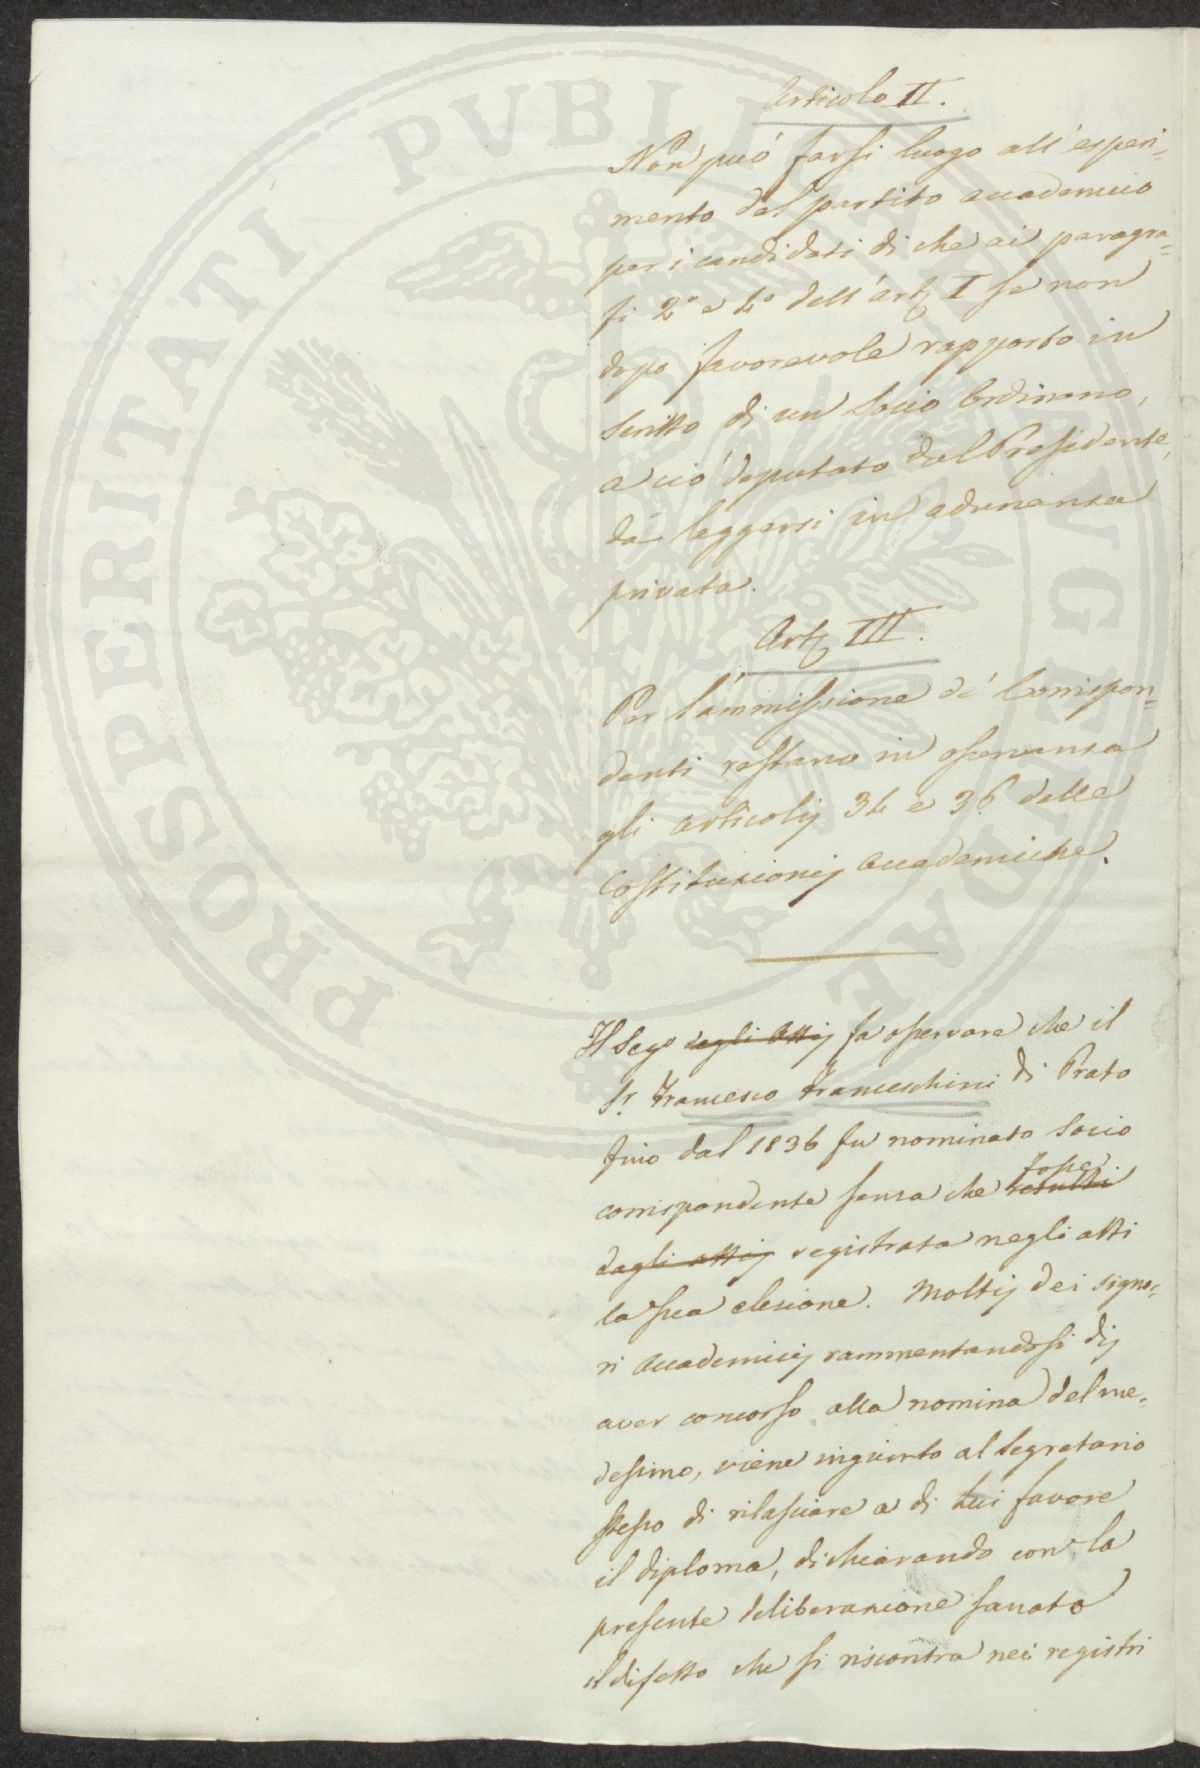 Articolo II.
Non può farsi luogo all'esperi=
mento del partito accademico
per i candidati di che ai paragra=
fi 2° e 4° dell'art. I se non
dopo favorevole rapporto in
scritto di un Socio Ordinario,
a ciò deputato dal Presidente,
da leggersi in adunanza
privata.
Art. III.
Per l'ammissione de' Corrispon=
denti restano in osservanza
gli articoli 34 e 36 delle
Costituzioni Accademiche.
Il Seg.o degli Atti fa osservare che il
Sr. Francesco Franceschini di Prato
fino dal 1836 fu nominato Socio
corrispondente senza che fosse resulti
dagli atti registrata negli atti
la sua elezione. Molti dei signo=
ri Accademici rammentandosi di
aver concorso alla nomina del me=
desimo, viene ingiunto al Segretario
stesso di rilasciare a di lui favore
il diploma, dichiarando con la
presente deliberazione sanato
il difetto che si riscontra nei registri
PROSPERITATI PVBLICAE AVGENDAE